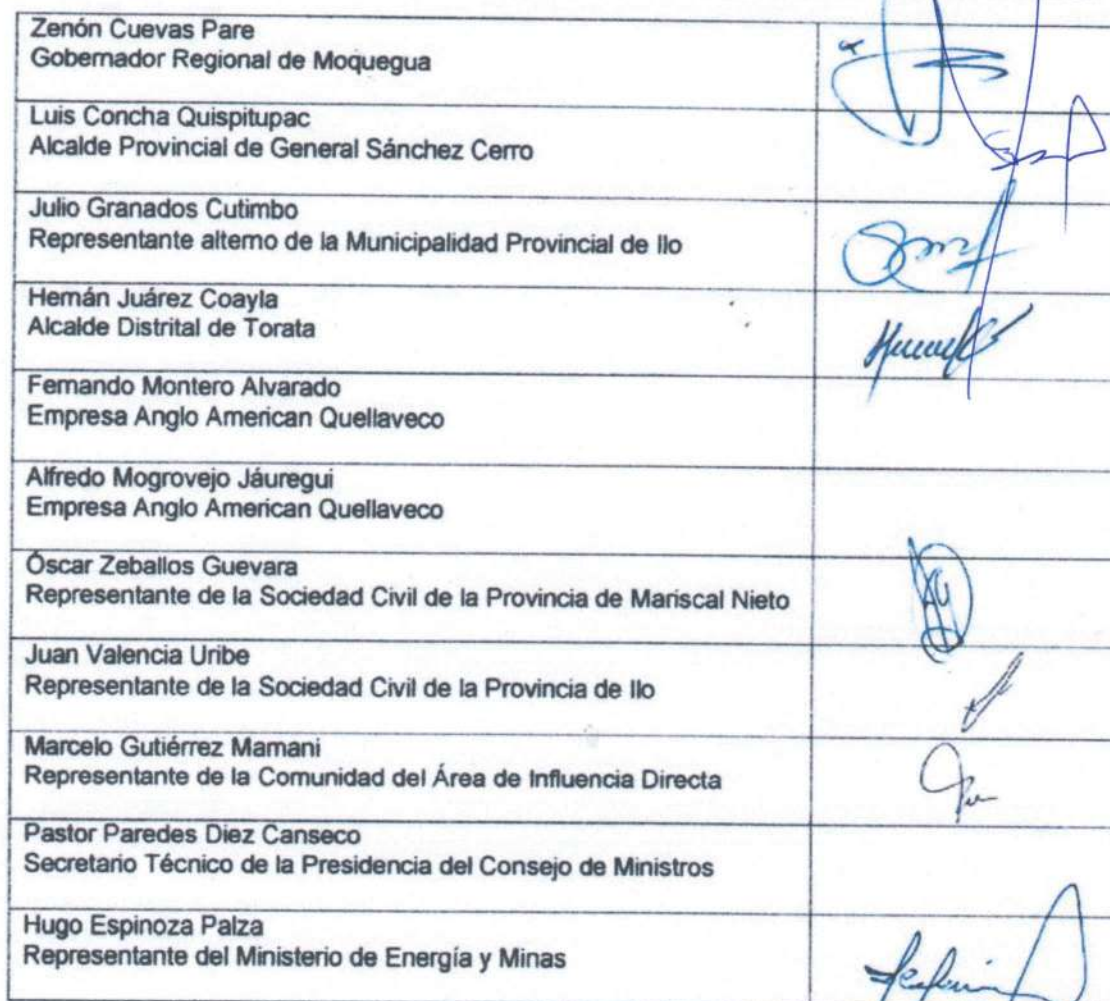 Zenón Cuevas Pare
Gobernador Regional de Moquegua
Luis Concha Quispitupac
Alcalde Provincial de General Sánchez Cerro
Julio Granados Cutimbo
Representante alterno de la Municipalidad Provincial de Ilo
Hernán Juárez Coayla
Alcalde Distrital de Torata
Fernando Montero Alvarado
Empresa Anglo American Quellaveco
Alfredo Mogrovejo Jáuregui
Empresa Anglo American Quellaveco
Óscar Zeballos Guevara
Representante de la Sociedad Civil de la Provincia de Mariscal Nieto
Juan Valencia Uribe
Representante de la Sociedad Civil de la Provincia de Ilo
Marcelo Gutiérrez Mamani
Representante de la Comunidad del Área de Influencia Directa
Pastor Paredes Diez Canseco
Secretario Técnico de la Presidencia del Consejo de Ministros
Hugo Espinoza Palza
Representante del Ministerio de Energía y Minas